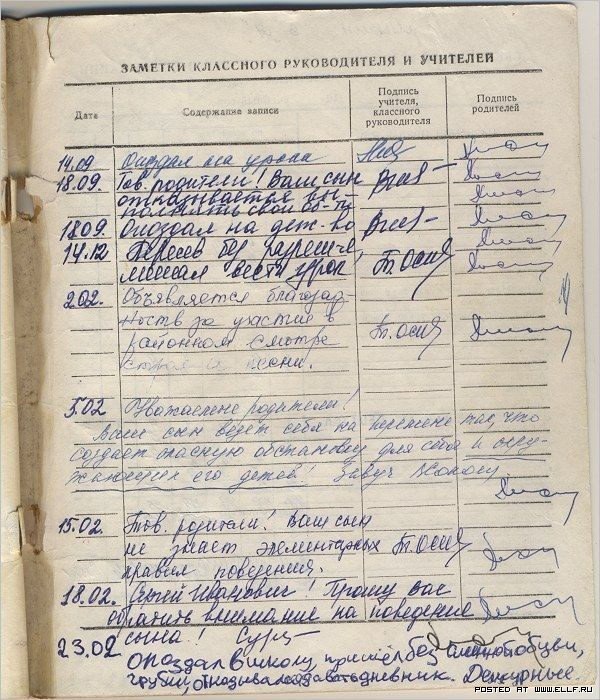 ЗАМЕТКИ КЛАССНОГО РУКОВОДИТЕЛЯ И УЧИТЕЛЕЙ
Дата
Содержание записи
Подпись учителя, классного руководителя
Подпись родителей
14.09 Опоздал на уроки
18.09. Тов. родители! Ваш сын
отказывается вы-
полнять свои об-ти
18.09 Опоздал на деж-во
14.12 Пересев без разреше,
мешал вести урок Т. Осип
2.02. Объявляется благодар-
ность за участие в
районном смотре Т. Осип
строя и песни.
5.02 Уважаемые родители!
Ваш сын ведёт себя на перемене так, что
создаёт опасную обстановку для себя и окру-
жающих его детей! Завуч
15.02. Тов. родители! Ваш сын
не знает элементарных Т. Осип
правил поведения.
18.02. Иванович! Прошу Вас
обратить внимание на поведение
сына!
23.02 опоздал в школу, пришёл без обуви,
грубил, отказывался давать дневник. Дежурные.
POSTED AT WWW.ELLF.RU